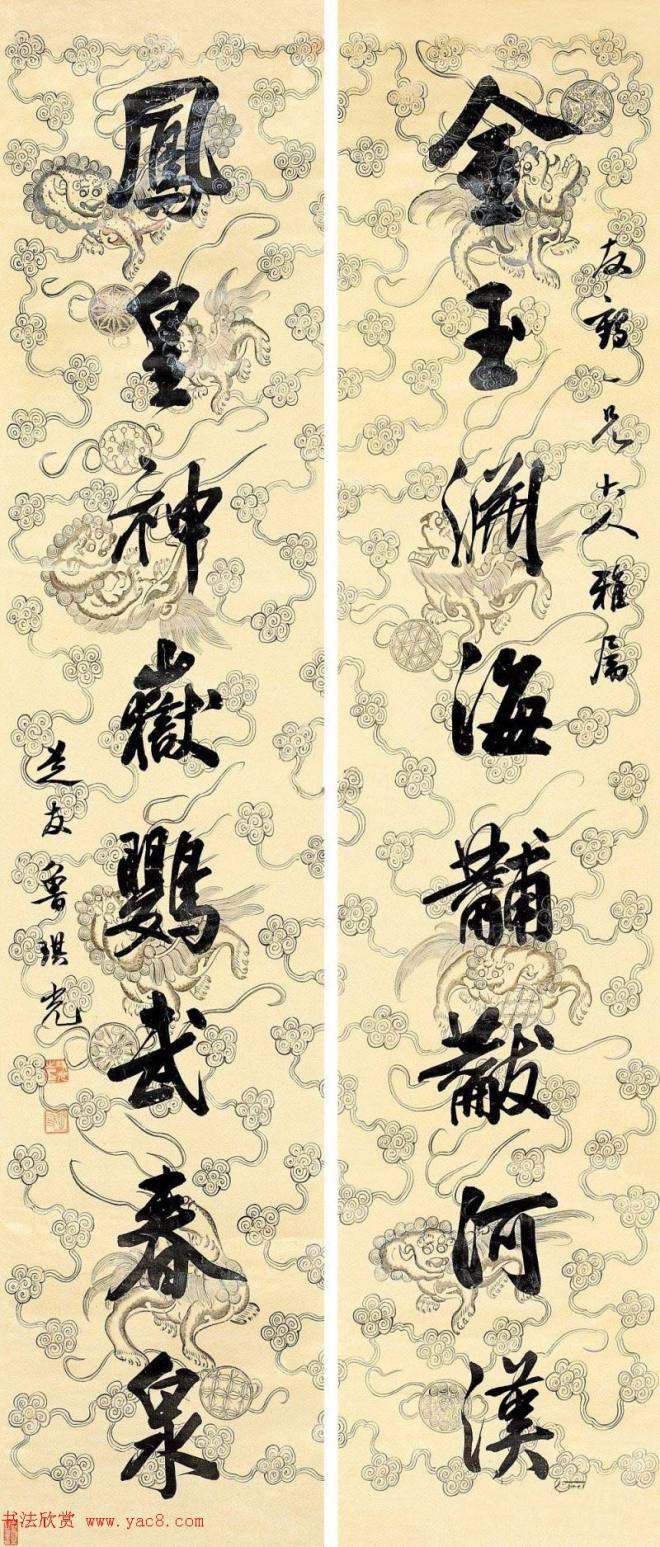 金玉淵海黼黻河漢
友一兄大人雅屬
鳳皇神嶽鸚武春泉
芝友魯琪光
书法欣赏 www.yac8.com